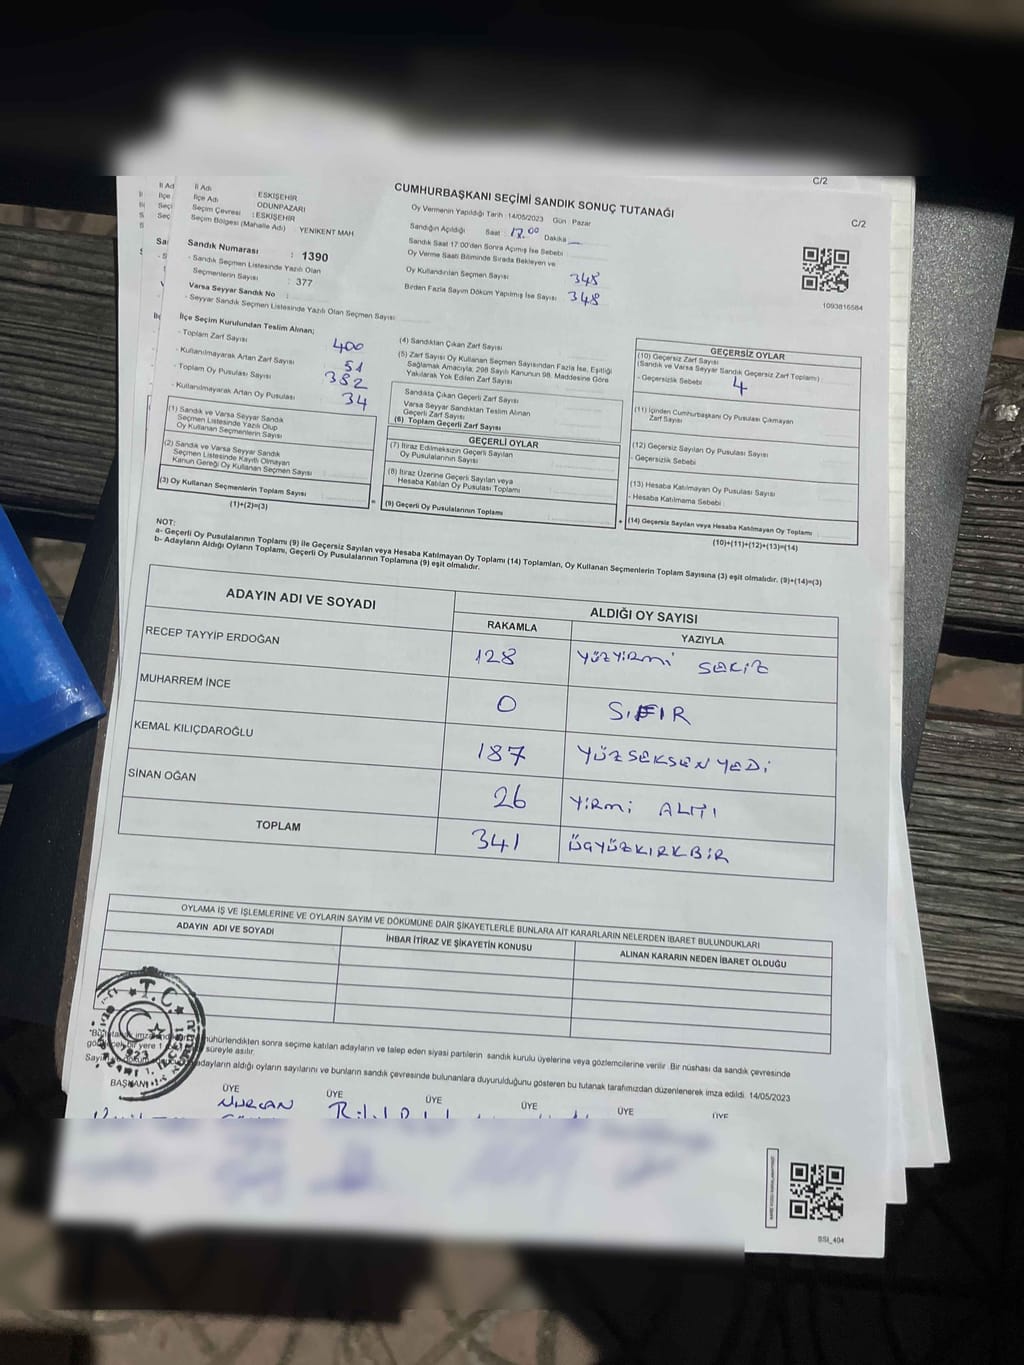 C/2
C/2
İl Adı : ESKİŞEHİR
İlçe Adı : ODUNPAZARI
Seçim Çevresi : ESKİŞEHİR
Seçim Bölgesi (Mahalle Adı) : YENIKENT MAH
Sandık Numarası : 1390
- Sandık Seçmen Listesinde Yazılı Olan
Seçmenlerin Sayısı : 377
Varsa Seyyar Sandık No :
- Seyyar Sandık Seçmen Listesinde Yazılı Olan Seçmen Sayısı:
CUMHURBAŞKANI SEÇİMİ SANDIK SONUÇ TUTANAĞI
Oy Vermenin Yapıldığı Tarih : 14/05/2023 Gün : Pazar
Sandığın Açıldığı Saat 17.00 Dakika
Sandık Saat 17:00'den Sonra Açımış İse Sebebi
Oy Verme Saati Bitiminde Sırada Bekleyen ve
Oy Kullandırılan Seçmen Sayısı 348
Birden Fazla Sayım Döküm Yapılmış İse Sayısı 348
1093816584
İlçe Seçim Kurulundan Teslim Alınan;
- Toplam Zarf Sayısı 400
- Kullanılmayarak Artan Zarf Sayısı 51
- Toplam Oy Pusulası Sayısı 382
- Kullanılmayarak Artan Oy Pusulası 34
(1) Sandık ve Varsa Seyyar Sandık
Seçmen Listesinde Yazılı Olup
Oy Kullanan Seçmenlerin Sayısı
(2) Sandık ve Varsa Seyyar Sandık
Seçmen Listesinde Kayıtlı Olmayan
Kanun Gereği Oy Kullanan Seçmen Sayısı
(3) Oy Kullanan Seçmenlerin Toplam Sayısı
(1)+(2)=(3)
(4) Sandıktan Çıkan Zarf Sayısı
(5) Zarf Sayısı Oy Kullanan Seçmen Sayısından Fazla İse, Eşitliği
Sağlamak Amacıyla, 298 Sayılı Kanunun 98. Maddesine Göre
Yakılarak Yok Edilen Zarf Sayısı
Sandıkta Çıkan Geçerli Zarf Sayısı
Varsa Seyyar Sandıktan Teslim Alınan
Geçerli Zarf Sayısı
(6) Toplam Geçerli Zarf Sayısı
GEÇERLİ OYLAR
(7) İtiraz Edilmeksizin Geçerli Sayılan
Oy Pusulalarının Sayısı
(8) İtiraz Üzerine Geçerli Sayılan veya
Hesaba Katılan Oy Pusulası Toplamı
(9) Geçerli Oy Pusulalarının Toplamı
GEÇERSİZ OYLAR
(10) Geçersiz Zarf Sayısı
(Sandık ve Varsa Seyyar Sandık Geçersiz Zarf Toplamı)
- Geçersizlik Sebebi 4
(11) İçinden Cumhurbaşkanı Oy Pusulası Çıkmayan
Zarf Sayısı
(12) Geçersiz Sayılan Oy Pusulası Sayısı
- Geçersizlik Sebebi
(13) Hesaba Katılmayan Oy Pusulası Sayısı
- Hesaba Katılmama Sebebi :
(14) Geçersiz Sayılan veya Hesaba Katılmayan Oy Toplamı
(10)+(11)+(12)+(13)=(14)
NOT:
a- Geçerli Oy Pusulalarının Toplamı (9) ile Geçersiz Sayılan veya Hesaba Katılmayan Oy Toplamı (14) Toplamları, Oy Kullanan Seçmenlerin Toplam Sayısına (3) eşit olmalıdır. (9)+(14)=(3)
b- Adayların Aldığı Oyların Toplamı, Geçerli Oy Pusulalarının Toplamına (9) eşit olmalıdır.
ADAYIN ADI VE SOYADI ALDIĞI OY SAYISI
RAKAMLA YAZIYLA
RECEP TAYYİP ERDOĞAN 128 YÜZYİRMİ SEKİZ
MUHARREM İNCE 0 SIFIR
KEMAL KILIÇDAROĞLU 187 YÜZSEKSENYEDİ
SİNAN OĞAN 26 YİRMİ ALTI
TOPLAM 341 ÜÇYÜZKIRKBİR
OYLAMA İŞ VE İŞLEMLERİNE VE OYLARIN SAYIM VE DÖKÜMÜNE DAİR ŞİKAYETLERLE BUNLARA AİT KARARLARIN NELERDEN İBARET BULUNDUKLARI
ADAYIN ADI VE SOYADI İHBAR İTİRAZ VE ŞİKAYETİN KONUSU ALINAN KARARIN NEDEN İBARET OLDUĞU
T.C.
1923
mühürlendikten sonra seçime katılan adayların ve talep eden siyasi partilerin sandık kurulu üyelerine veya gözlemcilerine verilir. Bir nüshası da sandık çevresinde
bir yere 1 süreyle asılır.
adayların aldığı oyların sayılarını ve bunların sandık çevresinde bulunanlara duyurulduğunu gösteren bu tutanak tarafımızdan düzenlenerek imza edildi. 14/05/2023
BAŞKAN ÜYE ÜYE ÜYE ÜYE ÜYE ÜYE
NURCAN
SSI_404